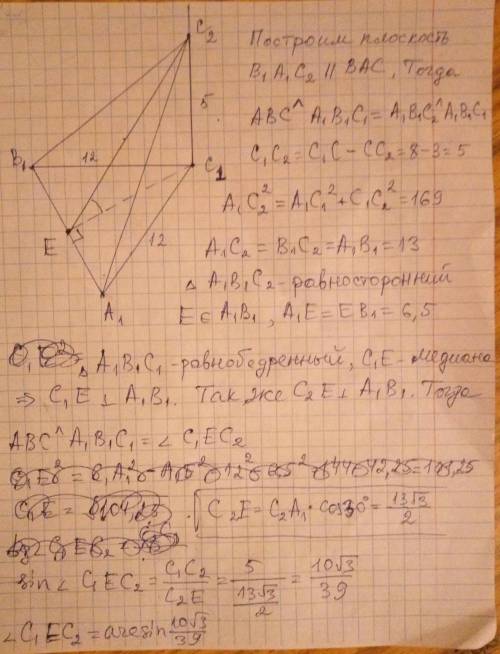 C₂
Построим плоскость
B₁A₁C₂ || BAC, Тогда
5
ABC^A₁B₁C₁ = A₁B₁C₂^A₁B₁C₁
B₁
12
C₁
C₁C₂ = C₁C - CC₂ = 8-3=5
A₁C₂² = A₁C₁² + C₁C₂² = 169
E
12
A₁C₂ = B₁C₂ = A₁B₁ = 13
△ A₁B₁C₂ - равносторонний
A₁
E ∈ A₁B₁, A₁E = EB₁ = 6,5
△ A₁B₁C₁ - равнобедренный, C₁E - медиана
⇒ C₁E ⊥ A₁B₁. Так же C₂E ⊥ A₁B₁. Тогда
ABC^A₁B₁C₁ = ∠ C₁EC₂
C₂E = C₂A₁ · cos30° = 13√3/2
sin∠ C₁EC₂ = C₁C₂/C₂E = 5/(13√3/2) = 10√3/39
∠C₁EC₂ = arcsin 10√3/39